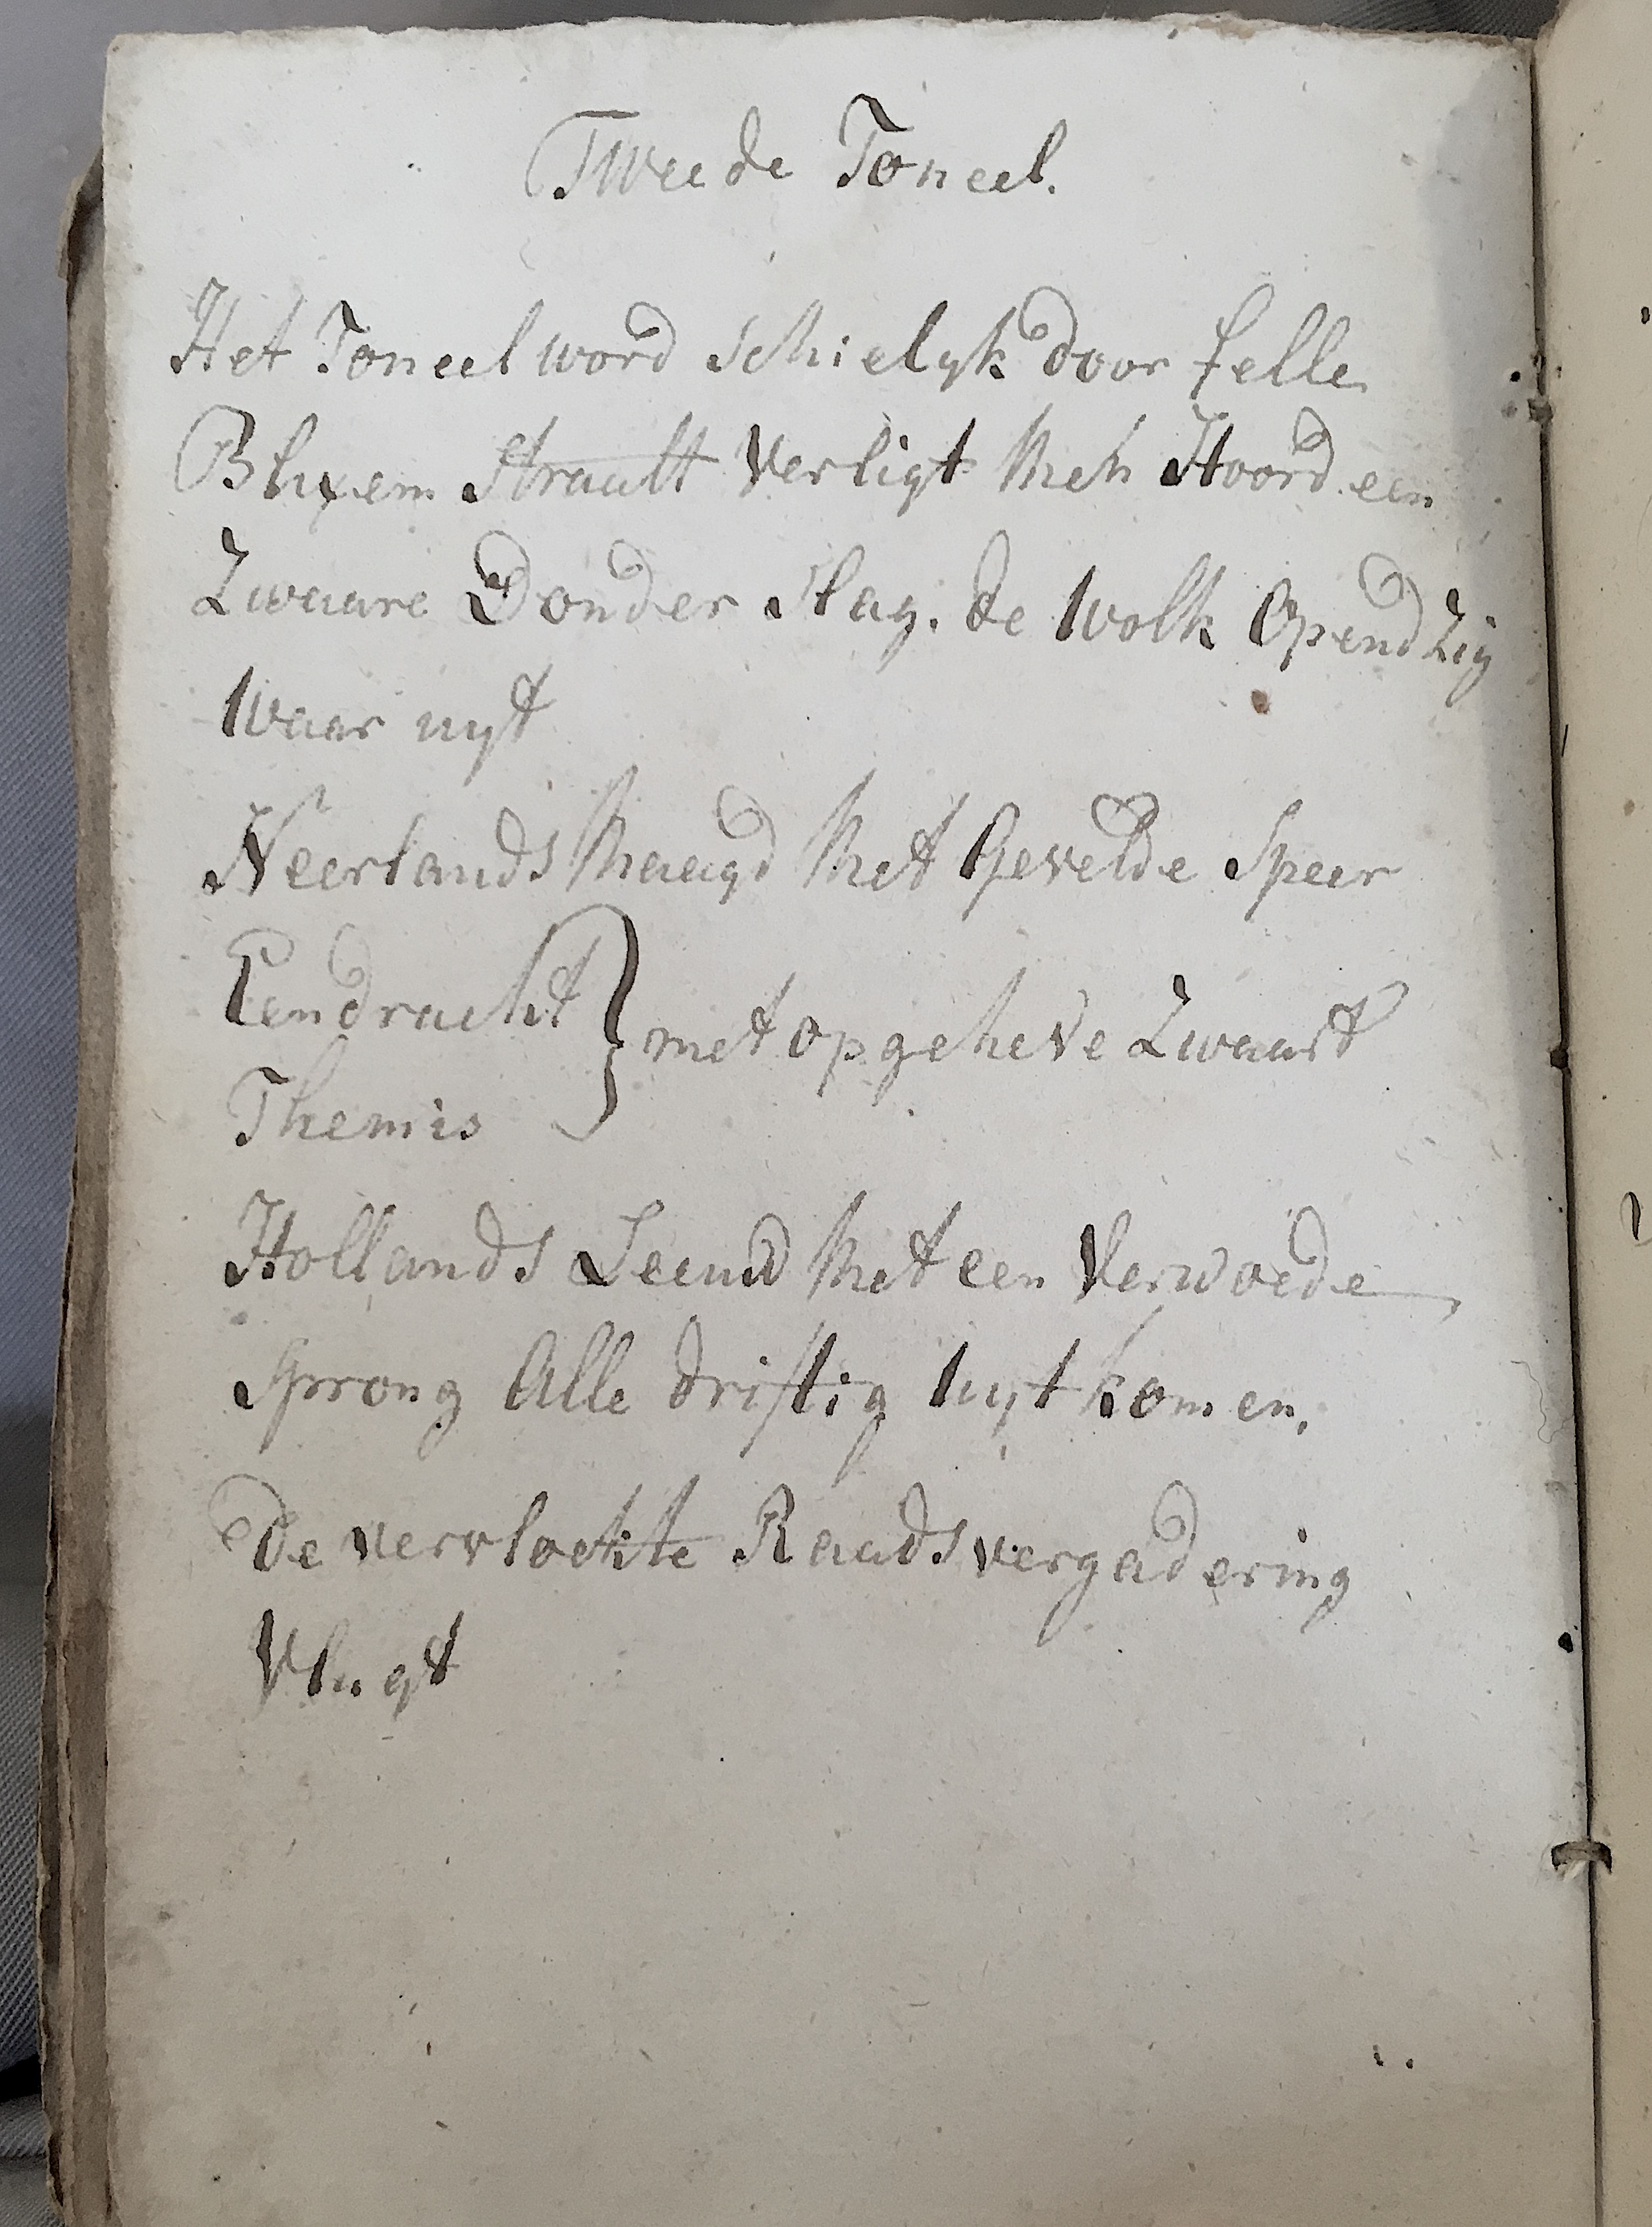 Tweede Toneel.
Het Toneel word schielyk door felle
Blixem Straalt Verligt Men Hoord een
Zwaare Donder Slag. de Wolk Opend Zig
Waar uyt
Neerlands Maagd Met Gevelde Speer
Eendracht } met opgeheve Zwaart
Themis
Hollands Leeuw Met een Verwoede
Sprong Alle driftig uyt komen,
De vervloekte Raadsvergadering
Vlugt